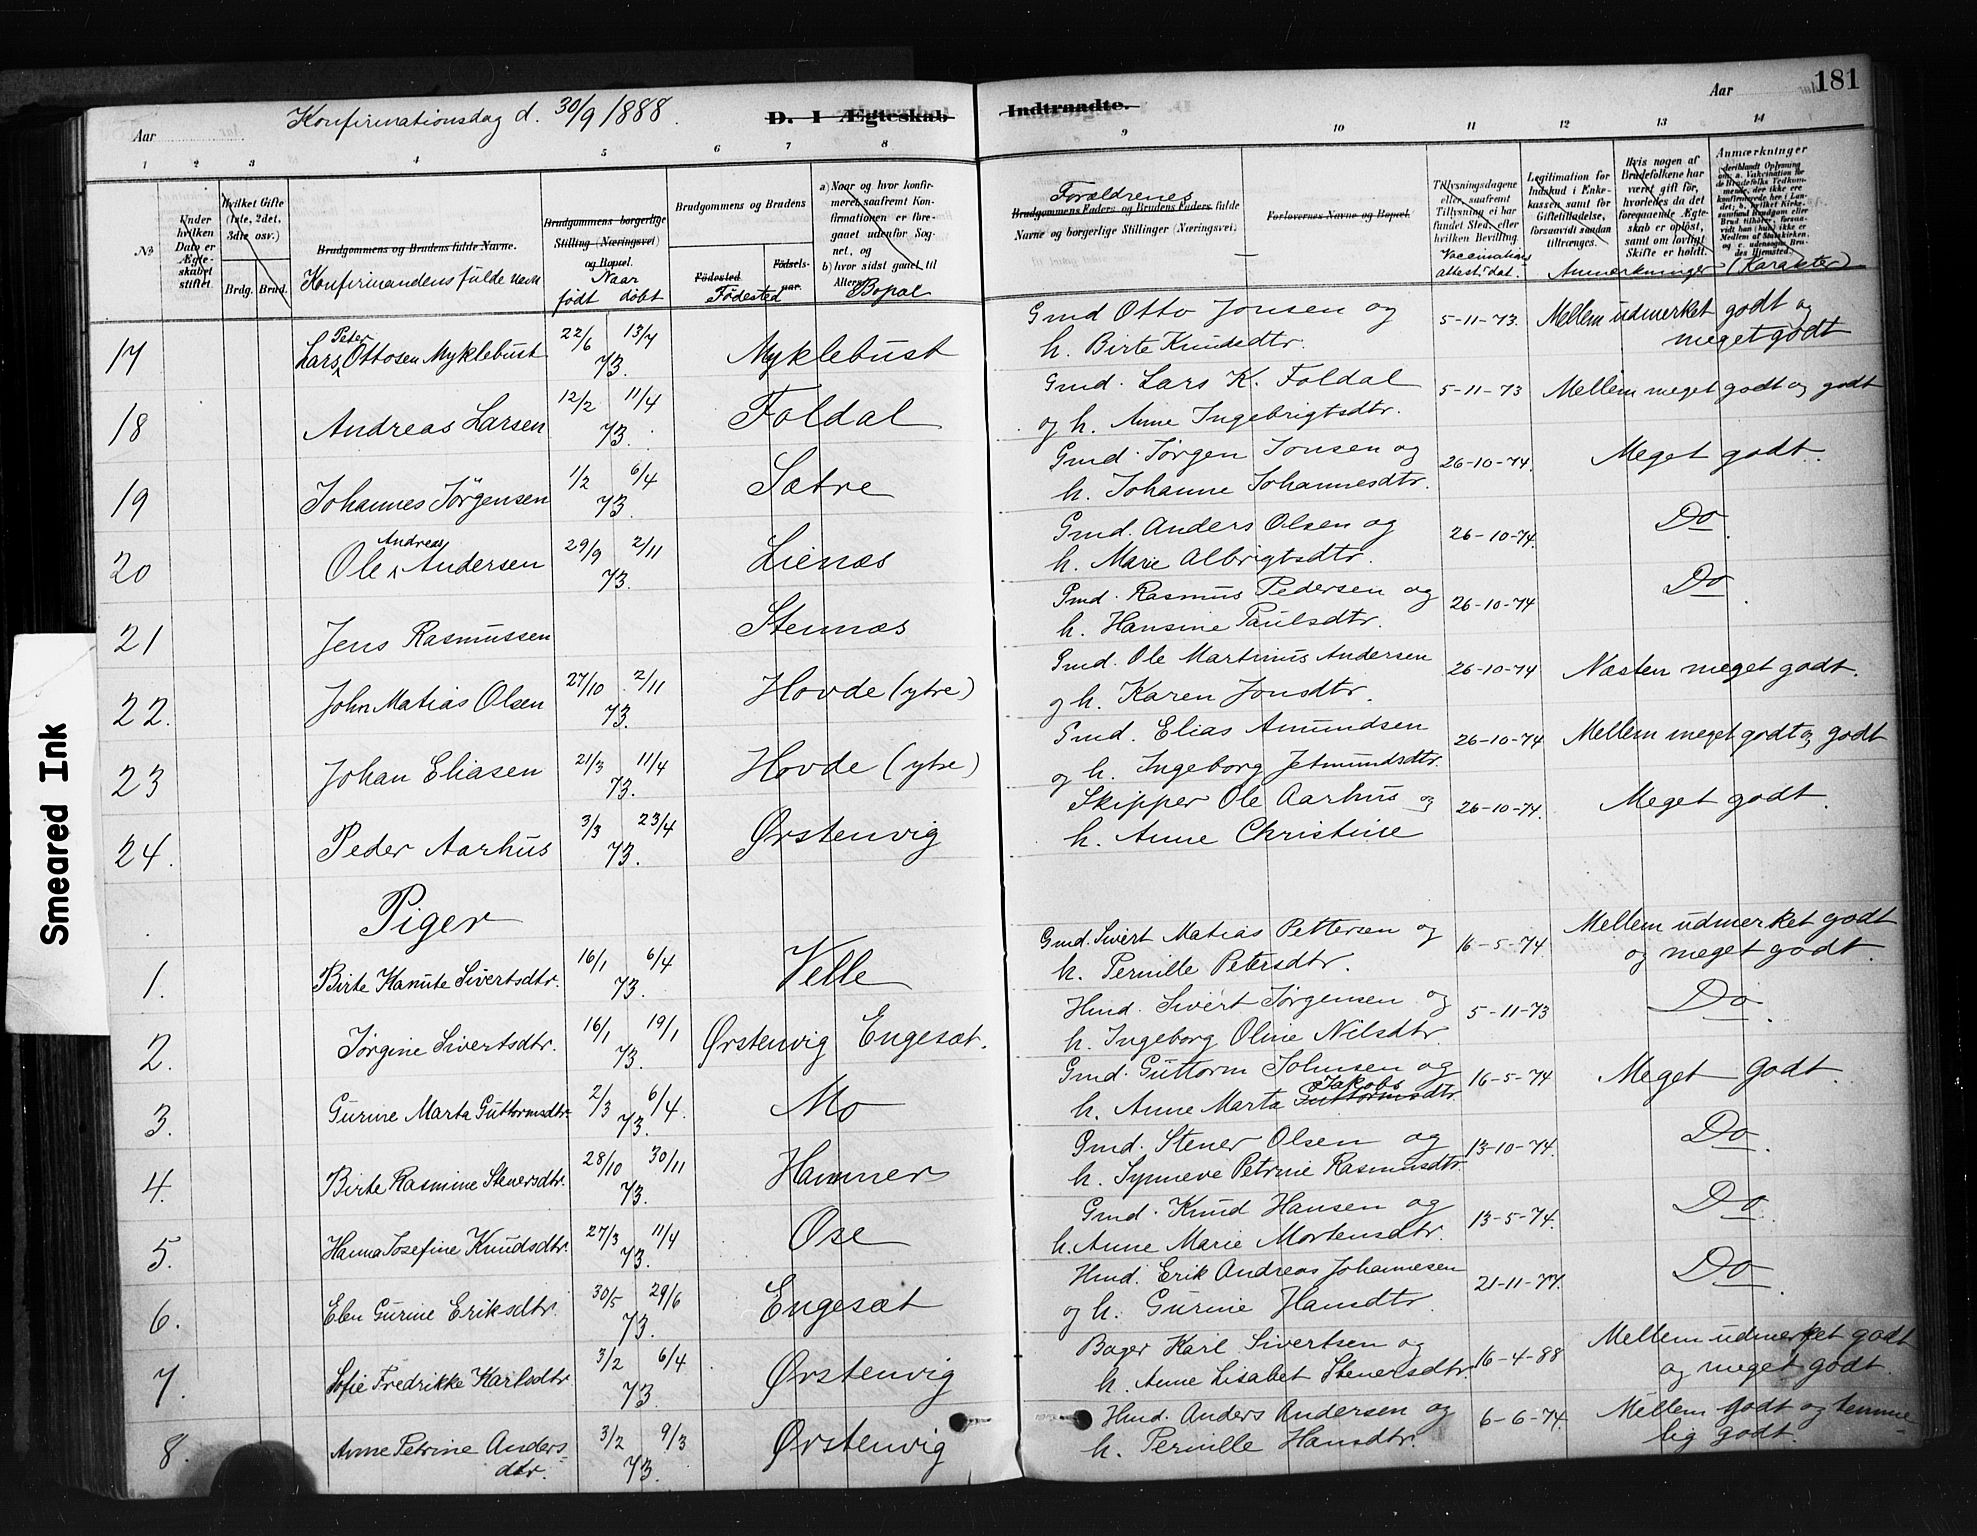 181
Aar
Konfirmationsdag d. 30/9 1888.
D. I Ægteskab
Indtraadte.
Aar
1 2 3 4 5 6 7 8 9 10 11 12 13 14
No
Under hvilken Dato er Ægteskabet stiftet.
Hvilket Gifte (1ste, 2det, 3die osv.)
Brdg. Brud.
Brudgommens og Brudens fulde Navne.
Konfirmandens fulde navn
Brudgommens borgerlige Stilling (Næringsvei) og Bopæl.
Naar
født døbt
Brudgommens og Brudens
Fødested
Fødsels-aar.
Fødested
a) Naar og hvor konfirmeret, saafremt Konfirmationen er foregaaet udenfor Sognet, og
b) hvor sidst gaaet til Alters.
Bopæl
Forældrenes
Brudgommens Faders og Brudens Faders fulde
Navne og borgerlige Stillinger (Næringsvei)
Forlovernes Navne og Bopæl.
Tillysningsdagene eller, saafremt Tillysning ei har fundet Sted, efter hvilken Bevilling.
Vaccinations attest. dat.
Legitimation for Indskud i Enkekassen samt for Giftetilladelse, forsaavidt saadan tiltrænges.
Hvis nogen af Brudefolkene har været gift før, hvorledes da det foregaaende Ægteskab er opløst, samt om lovligt Skifte er holdt.
Anmærkninger
Anmerkninger (Karakter)
17 Lars Peter Ottosen Myklebust 22/6 13/7 73. Myklebust Gmd Otto Jonsen og h. Birte Knudsdtr. 5-11-73. Mellem udmerket godt og meget godt
18 Andreas Larsen 12/2 11/4 73. Foldal Gmd. Lars K. Foldal og h. Anne Ingebrigtsdtr. 5-11-73 Mellem meget godt og godt
19 Johannes Jörgensen 1/2 6/4 73. Sætre Gmd. Jørgen Jonsen og h. Johanne Johannesdtr. 26-10-74. Meget godt.
20 Ole Andreas Andersen 29/9 2/11 73. Lienæs Gmd. Anders Olsen og h. Marie Albrigtsdtr. 26-10-74. Do
21 Jens Rasmussen Stennæs Gmd. Rasmus Pedersen og h. Hansine Paulsdtr. 26-10-74 Do.
22. John Matias Olsen 27/10 2/11 73. Hovde (ytre) Gmd. Ole Martinus Andersen og h. Karen Jonsdtr. 26-10-74 Næsten meget godt.
23 Johan Eliasen 21/3 11/4 73. Hovde (ytre) Gmd. Elias Amundsen og h. Ingeborg Jetmundsdtr. 26-10-74 Mellem meget godt og godt
24. Peder Aarhus 3/3 23/4 73. Ørstenvig Skipper Ole Aarhus og h. Anne Christine 26-10-74. Meget godt.
Piger
1. Birte Kanute Sivertsdtr. 16/1 6/4 73. Velle Gmd. Sivert Matias Pettersen og h. Pernille Petersdtr. 16-5-74. Mellem udmerket godt og meget godt.
2. Jørgine Sivertsdtr. 16/1 19/1 73. Ørstenvig Engesæt. Hmd. Sivert Jørgensen og h. Ingeborg Oline Nilsdtr. 5-11-73 Do.
3. Gurine Marta Guttormsdtr. 2/3 6/4. 73. Mo Gmd. Guttorm Johnsen og h. Anne Marta Guttorms Jakobsdtr. 16-5-74 Meget godt.
4. Birte Rasmine Stenersdtr. 28/10 30/11 73. Hamner Gmd. Stener Olsen og h. Synneve Petrine Rasmusdtr. 13-10-74. Do.
5. Hanna Josefine Knudsdtr. 27/3 11/4 73. Ose Gmd. Knud Hansen og h. Anne Marie Mortensdtr. 13-5-74. Do.
6. Elen Gurine Eriksdtr. 30/5 29/6 73. Engesæt Hmd. Erik Andreas Johannesen og h. Gurine Hansdtr. 21-11-74. Do.
7. Sofie Fredrikke Karlsdtr. 3/2 6/4 73. Ørstenvig Bager Karl Sivertsen og h. Anne Lisabet Stenersdtr. 16-4-88 Mellem udmerket godt og meget godt.
8. Anne Petrine Andersdtr. 3/2 9/3 73. Ørstenvig Hmd. Anders Andersen og h. Pernille Hansdtr. 6-6-74. Mellem godt og temmelig godt.
Smeared Ink